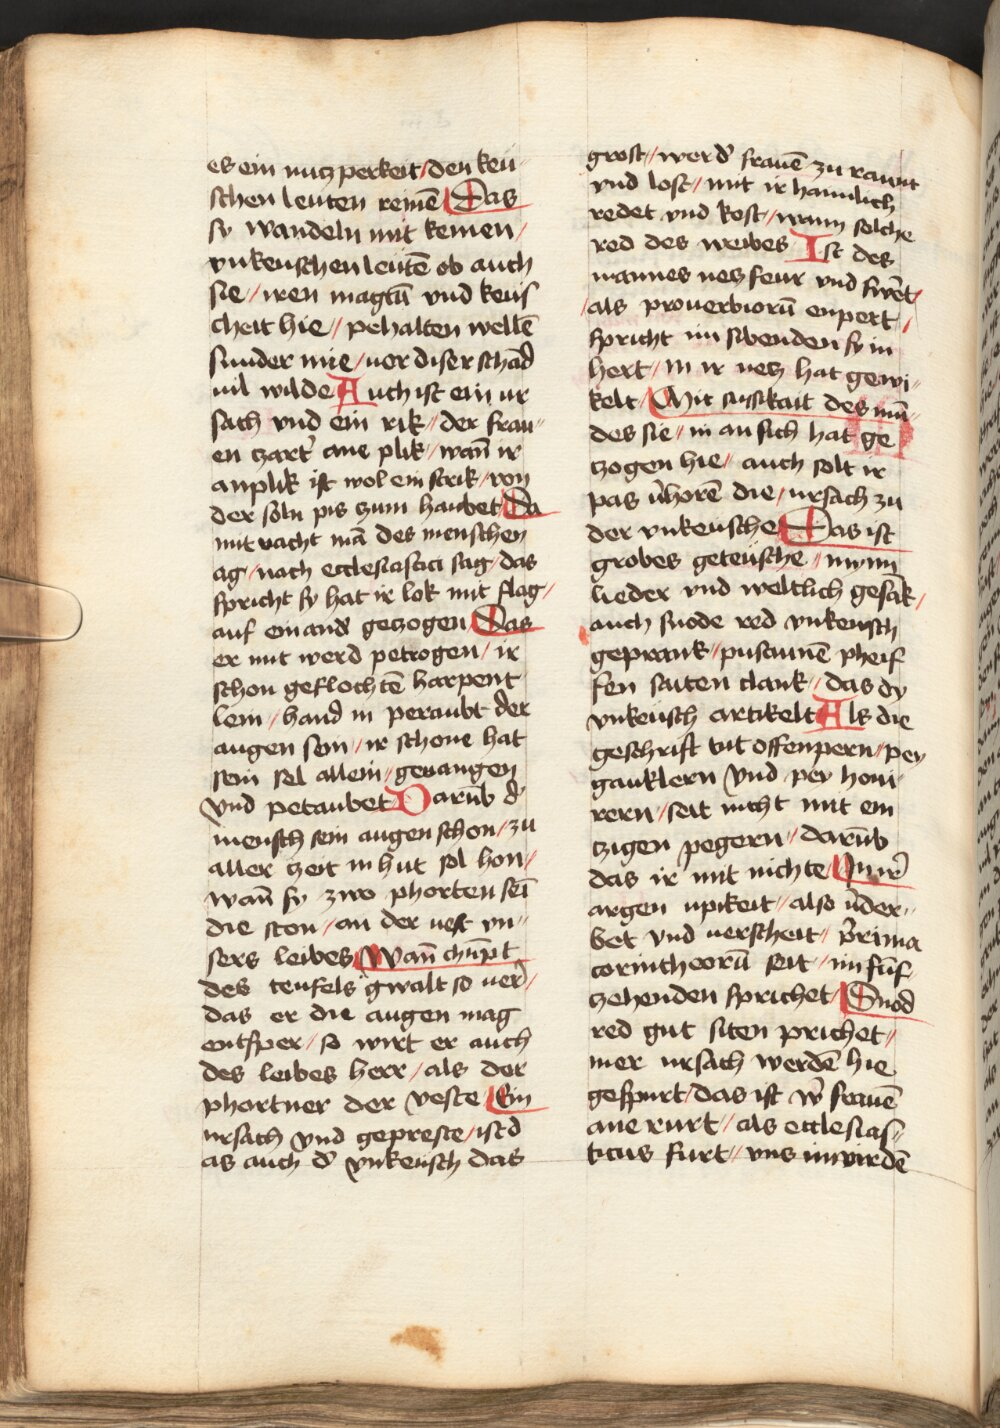 es ein nutzperkeit / den keu
schen leuten reinē / Das
sy wandeln mit keinen /
vnkeuschen leutē ob auch
sie / iren magtū vnd keus
cheit hie // pehalten wellē
sunder nue / uor diser schād
uil wilde Auch ist ein ur
sach vnd ein rik // der frau
en tzart' ane plik / wañ ir
anplik ist wol ein strik / von
der soln pis zum haubet / Da
mit vacht mā des menschen
ag / nach ecclesiastici sag / das
spricht sy hat ir lok mit flag /
auf einand getzogen / Das
er mit werd petrogen / ir
schon geflochtē harpent
lein / hand in peraubt der
augen sein / ir schone hat
sein sel allein / geuangen
vnd petaubet / Darūb d'
mensch sein augen schon / zu
aller zeit in hut sol hon /
wañ sy zwo phorten seī
die ston / an der uest vn
sers leibes / Wañ chūpt
des teufels gwalt so uer' /
das er die augen mag
entsper / so wirt er auch
des leibes herr / als der
phortner der veste / Ein
ursach vnd gepreste / ist d
as auch d' vnkeusch das
grost // wer d' frauē zu raunt
vnd lost / mit ir haimlich
redet vnd kost / wann solche
red des weibes / Ist des
mannes nes feur vnd swēt /
/ als prouerbiorū enpert /
spricht im sibenden sy in
hert / in ir netz hat gewi
kelt / Mit sussikait des mū
des sie / in an sich hat ge
tzogen hie / auch solt ir
pas v'horē die / ursach zu
der vnkeusche / Das ist
grobes geteusche / mynn
lieder vnd weltlich gesāk /
auch snode red vnkeusch
geprank / pusaunē pheif
fen saiten clank / das dy
vnkeusch artikelt / Als die
geschrift tut offenpern / pey
gauklern vnd pey honi
rern / seit nicht mit ein
tzigen pegern / darūb
das ir mit nichte / In ir'
argen upikeit / also v'der
bet vnd uerscheit / prima
corintheorū seit / im fūf
tzehenden sprichet / Snod
red gut siten prichet //
mer ursach werdē hie
gespurt / das ist w' frauē
ane rurt / als ecclesias
ticus furt // vns inwirdē